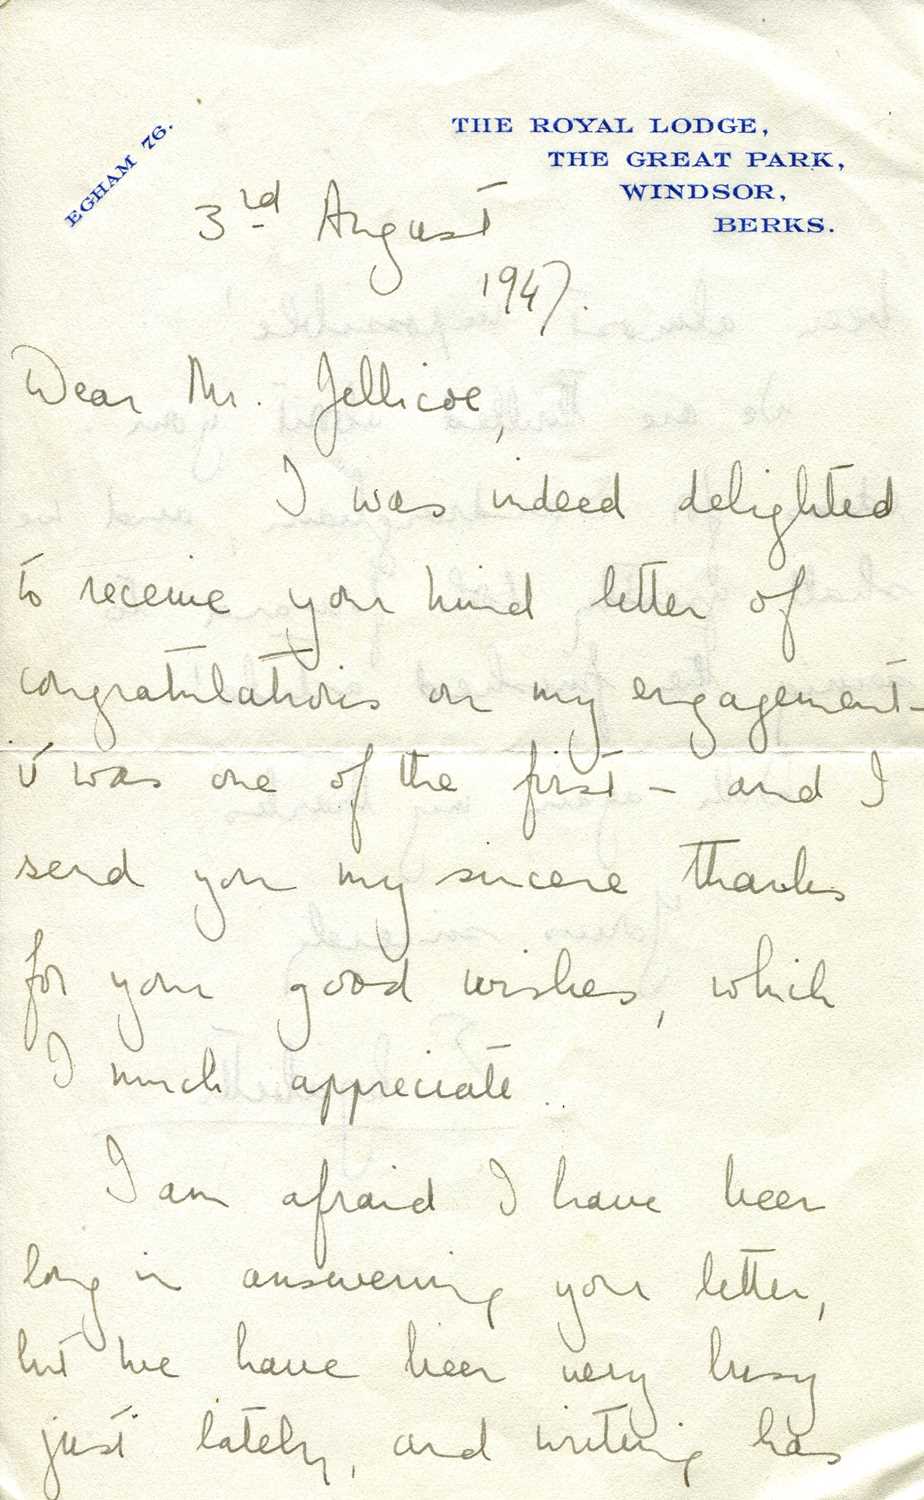 EGHAM 76.
THE ROYAL LODGE,
THE GREAT PARK,
WINDSOR,
BERKS.
3rd August
1947.
Dear Mr. Jellicoe,
I was indeed delighted
to receive your kind letter of
congratulations on my engagement -
it was one of the first - and I
send you my sincere thanks
for your good wishes, which
I much appreciate.
I am afraid I have been
long in answering your letter,
but we have been very busy
just lately, and writing has